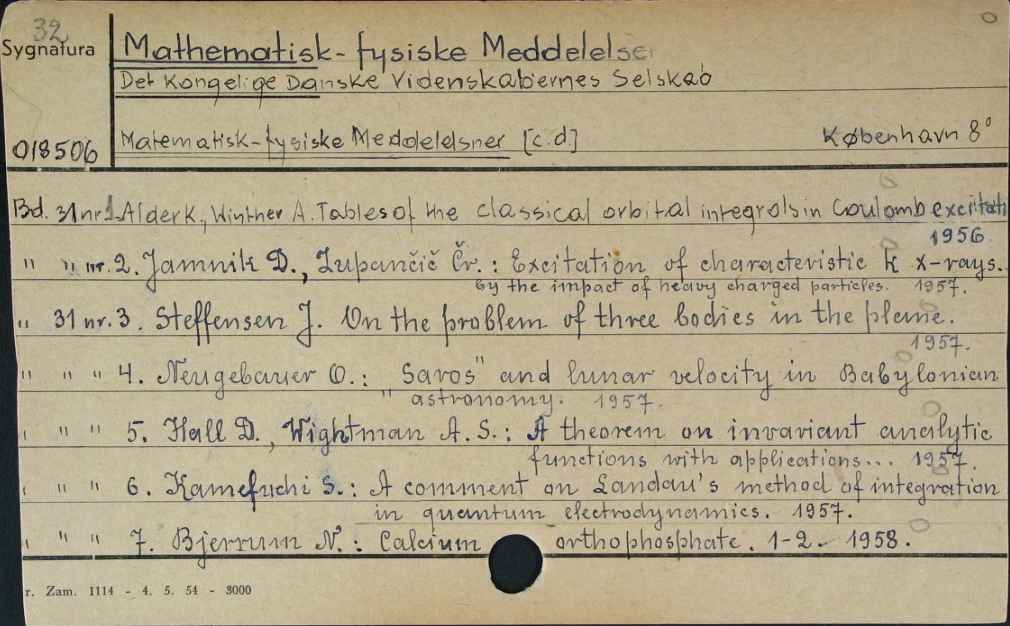 32
Sygnatura
Mathematisk-fysiske Meddelelser
Det Kongelige Danske Videnskabernes Selskab
018506 Matematisk-fysiske Meddelelsner [c.d.] København 8°
Bd. 31 nr. 1 Alder K., Winther A. Tables of the classical orbital integrals in Coulomb excitati
1956
" " nr. 2. Jamnik D., Zupančič Čr.: Excitation of characteristic K x-rays.
by the impact of heavy charged particles. 1957.
" 31 nr. 3. Steffensen J. On the problem of three bodies in the plane.
1957.
" " " 4. Neugebauer O.: "Saros" and lunar velocity in Babylonian
astronomy. 1957.
" " " 5. Hall D., Wightman A. S.: A theorem on invariant analytic
functions with applications... 1957.
" " " 6. Kamefuchi S.: A comment on Landau's method of integration
in quantum electrodynamics. 1957.
" " " 7. Bjerrum N.: Calcium orthophosphate. 1-2. 1958.
r. Zam. 1114 - 4. 5. 54 - 3000